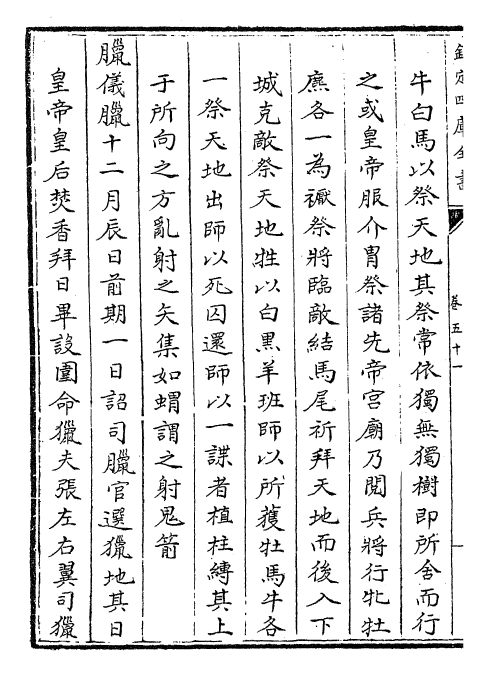 欽定四庫全書
卷五十一
牛白馬以祭天地其祭常依獨無獨樹即所舍而行
之或皇帝服介胄祭諸先帝宫廟乃閲兵將行牝牡
麃各一為禷祭將臨敵結馬尾祈拜天地而後入下
城克敵祭天地牲以白黑羊班師以所獲牡馬牛各
一祭天地出師以死囚還師以一諜者植柱縛其上
于所向之方亂射之矢集如蝟謂之射鬼箭
臘儀臘十二月辰日前期一日詔司臘官選獵地其日
皇帝皇后焚香拜日畢設圍命獵夫張左右翼司獵